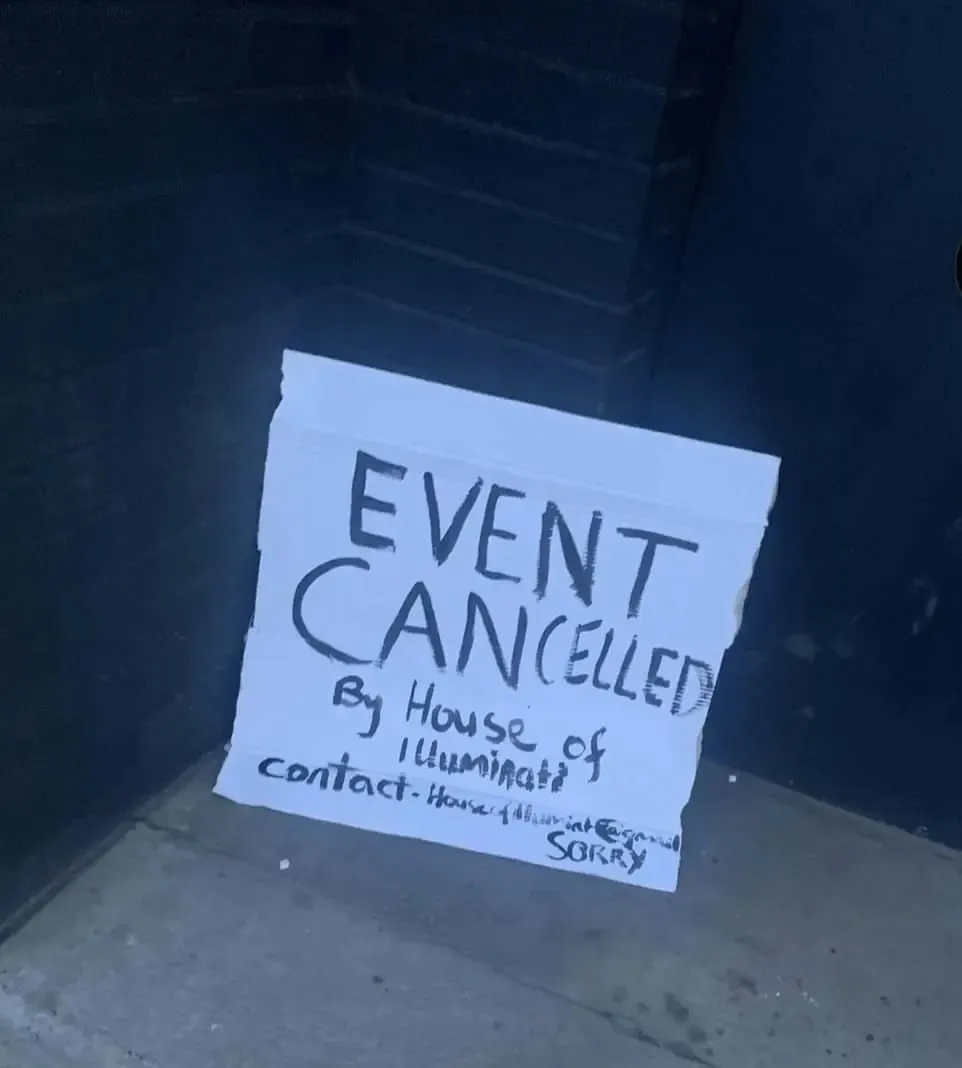 EVENT
CANCELLED
By House of
Illuminati
contact - House of Illuminati@gmail
SORRY